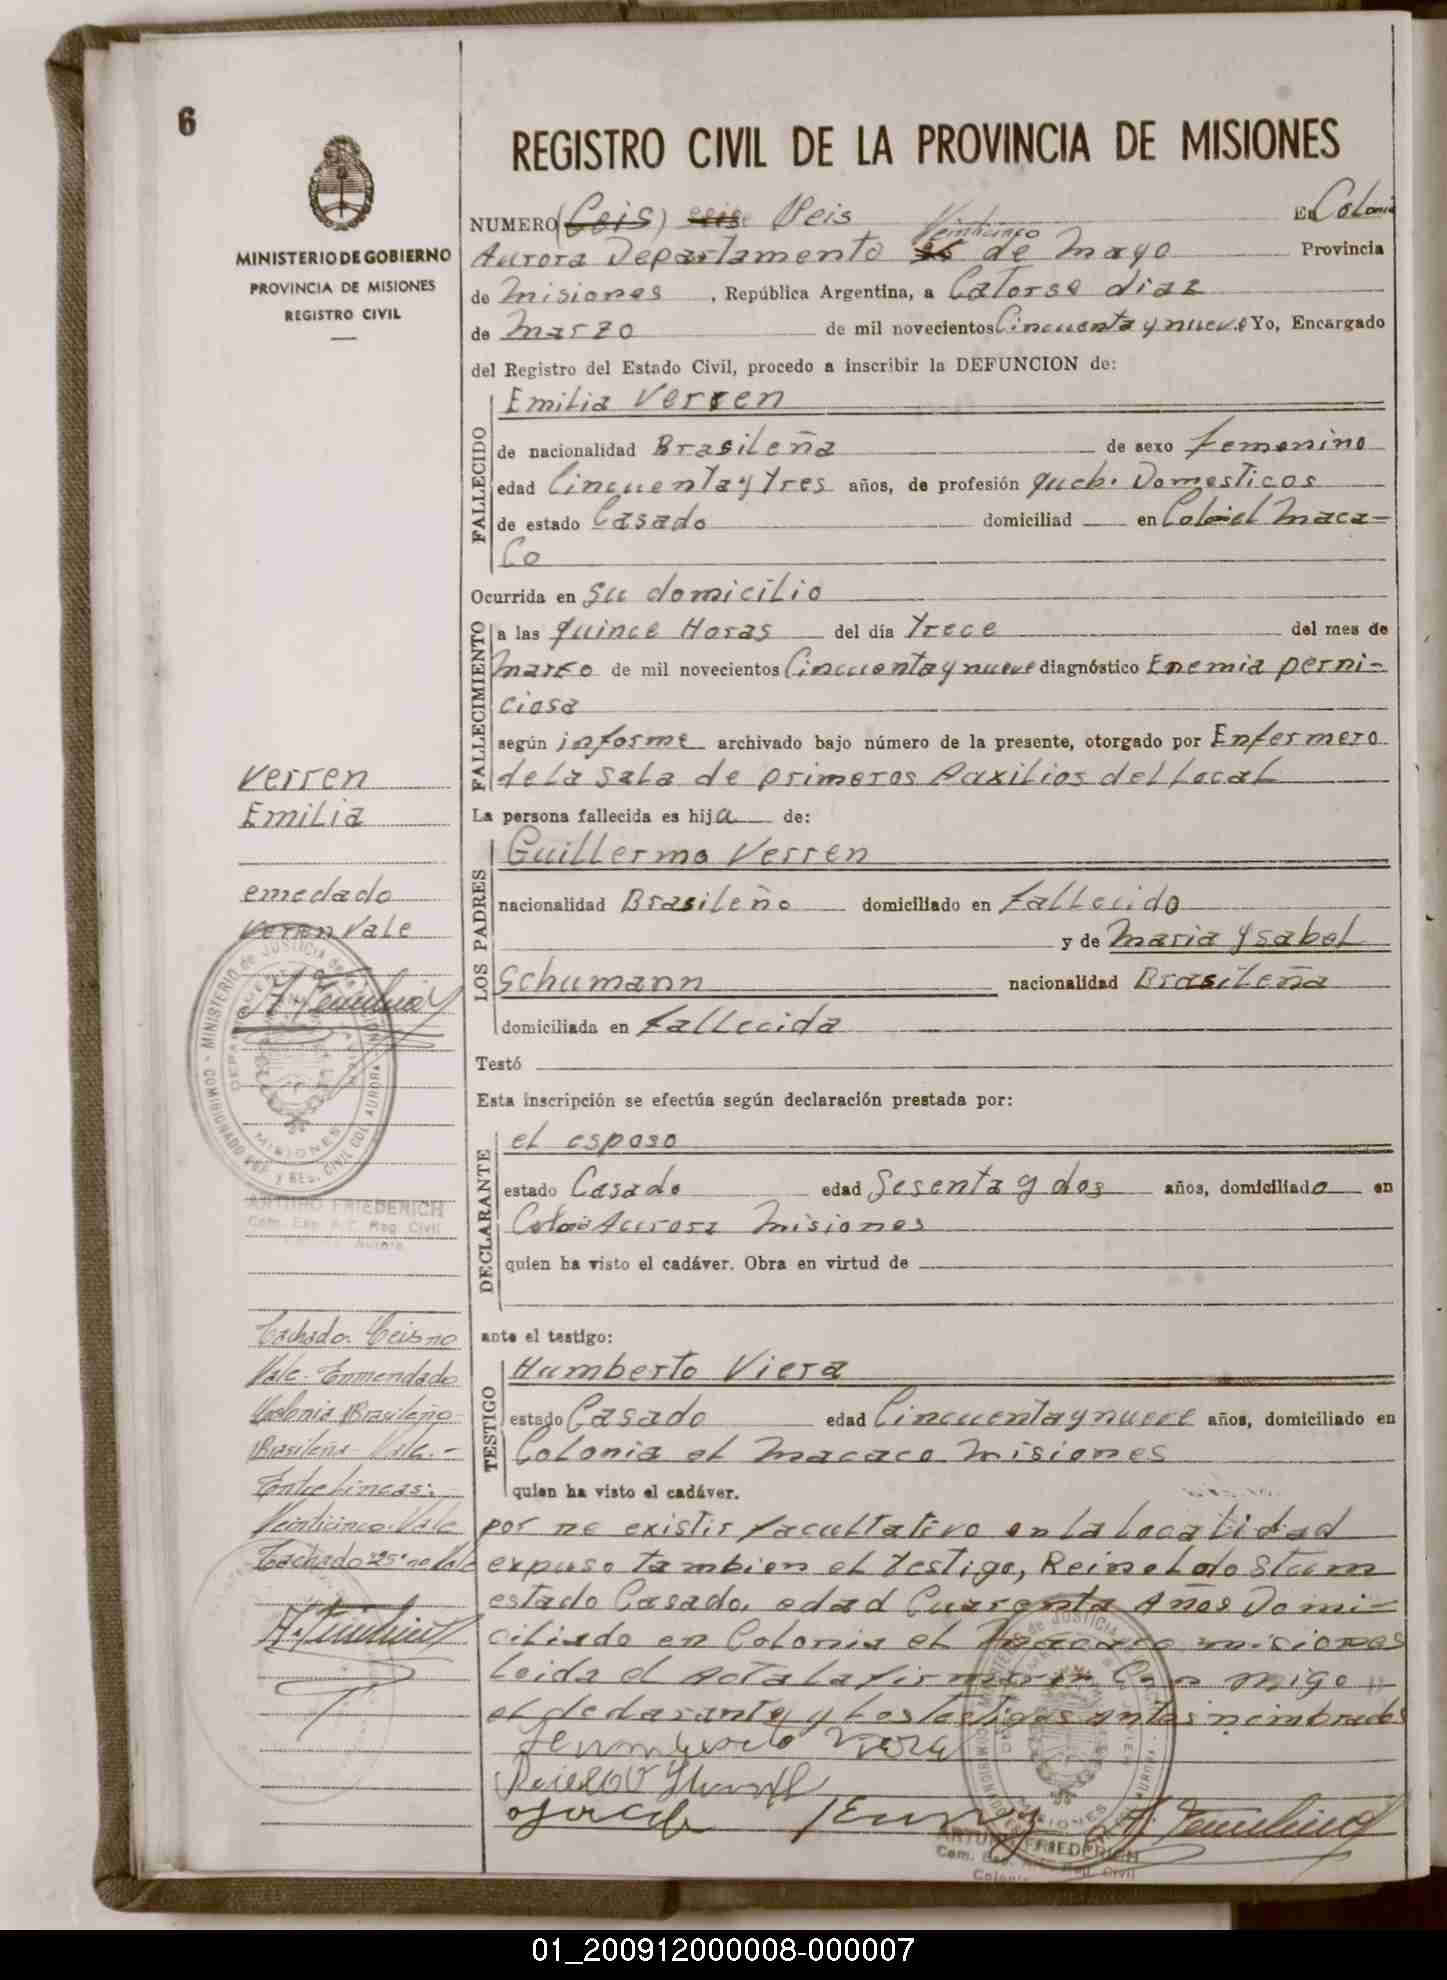 6
MINISTERIO DE GOBIERNO
PROVINCIA DE MISIONES
REGISTRO CIVIL
REGISTRO CIVIL DE LA PROVINCIA DE MISIONES
NUMERO (Ceis) seis Seis En Colonia
Veinticinco
Aurora Departamento 25 de Mayo Provincia
de Misiones , República Argentina, a Catorse diaz
de Marzo de mil novecientos Cincuenta y nueve Yo, Encargado
del Registro del Estado Civil, procedo a inscribir la DEFUNCION de:
FALLECIDO
Emilia Verren
de nacionalidad Brasileña de sexo femenino
edad Cincuenta y tres años, de profesión queh. Domesticos
de estado Casado domiciliad en Col el Maca-
Co
Ocurrida en su domicilio
FALLECIMIENTO
a las quince Horas del día trece del mes de
Marzo de mil novecientos Cincuenta y nueve diagnóstico Enemia perni-
ciosa
según informe archivado bajo número de la presente, otorgado por Enfermero
de la sala de primeros Auxilios del Local
La persona fallecida es hija de:
LOS PADRES
Guillermo Verren
nacionalidad Brasileño domiciliado en fallecido
y de Maria Ysabel
Schumann nacionalidad Brasileña
domiciliada en fallecida
Testó
Esta inscripción se efectúa según declaración prestada por:
DECLARANTE
el esposo
estado Casado edad Sesenta y dos años, domiciliado en
Colonia Aurora Misiones
quien ha visto el cadáver. Obra en virtud de
ante el testigo:
TESTIGO
Humberto Viera
estado Casado edad Cincuenta y nueve años, domiciliado en
Colonia el Macaco Misiones
quien ha visto el cadáver.
por no existir facultativo en la localidad
expuso tambien el testigo, Reinoldo Stum
estado Casado, edad Cuarenta Años Domi-
ciliado en Colonia el Macaco misiones
Leida el Acta la firmaron Con migo
el declarante y los testigos antes nombrados
Humberto Viera
Verren
Emilia
emedado
Verren Vale
MINISTERIO de JUSTICIA de la NACION
MISIONES
ARTURO FRIEDERICH
Reg. Civil
Aurora
Tachado. Ceis no
Vale. Enmendado
Colonia Brasileño
Brasileña Vale.-
Entre Lineas:
Veinticinco. Vale
Tachado "25" no Vale
ARTURO FRIEDERICH
Reg. Civil
01_200912000008-000007